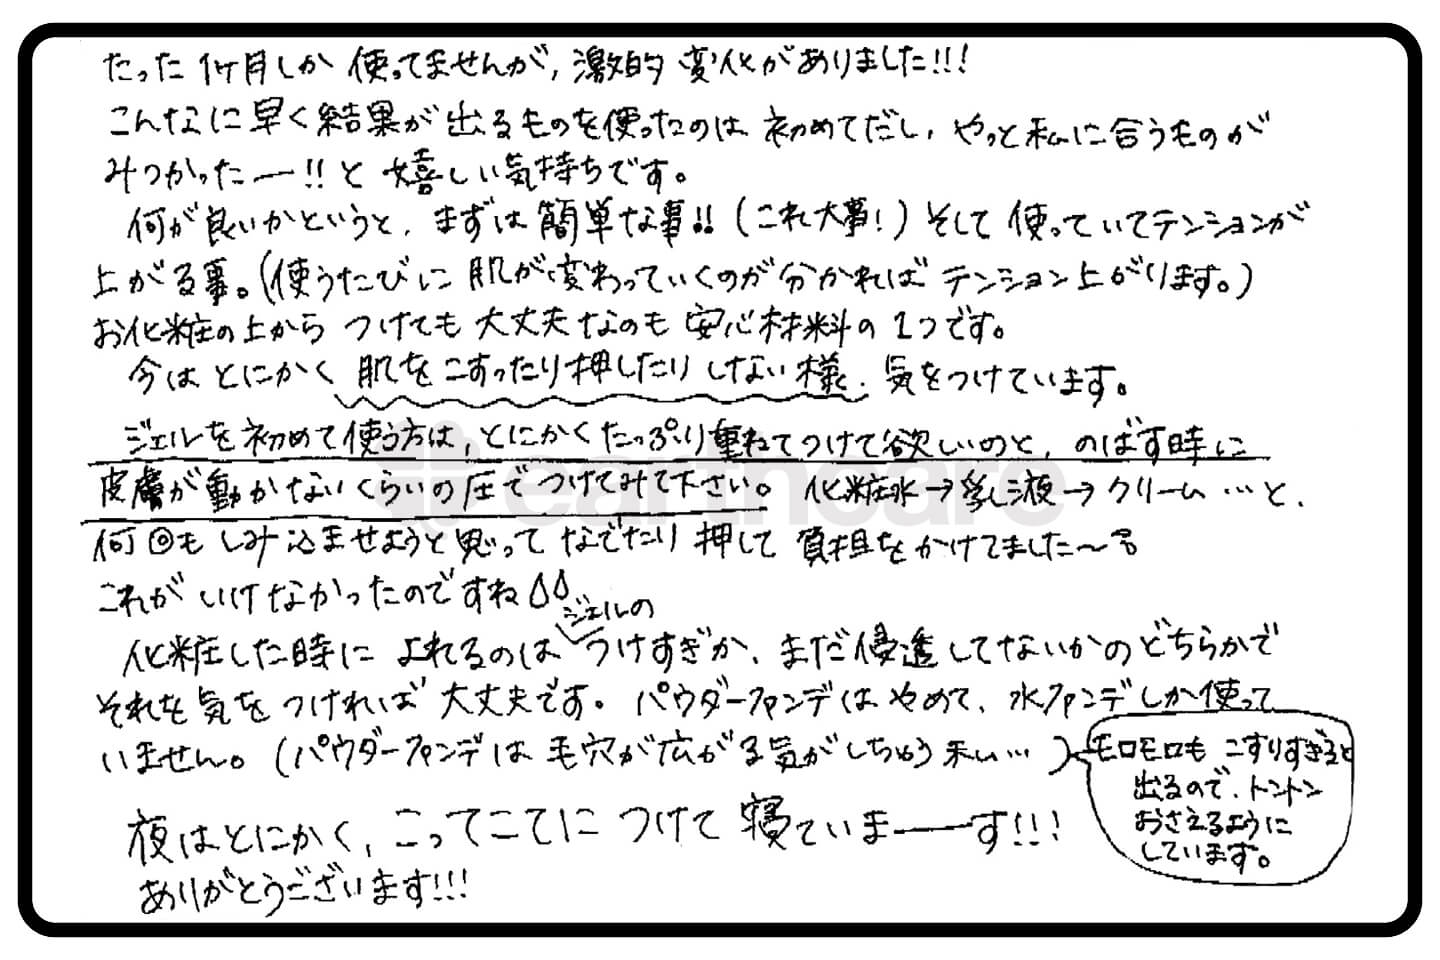 たった1ヶ月しか使ってませんが、激的変化がありました!!!
こんなに早く結果が出るものを使ったのは初めてだし、やっと私に合うものが
みつかったー!!と嬉しい気持ちです。
何が良いかというと、まずは簡単な事!!(これ大事!)そして使っていてテンションが
上がる事。(使うたびに肌が変わっていくのが分かればテンション上がります。)
お化粧の上からつけても大丈夫なのも安心材料の1つです。
今はとにかく肌をこすったり押したりしない様、気をつけています。
ジェルを初めて使う方は、とにかくたっぷり重ねてつけて欲しいのと、のばす時に
皮膚が動かないくらいの圧でつけてみて下さい。化粧水→乳液→クリーム…と、
何回もしみ込ませようと思ってなでたり押して負担をかけてました〜
これがいけなかったのですね
ジェルの
化粧した時によれるのはつけすぎか、まだ浸透してないかのどちらかで
それを気をつければ大丈夫です。パウダーファンデはやめて、水ファンデしか使って
いません。(パウダーファンデは毛穴が広がる気がしちゃう私…)
モロモロもこすりすぎると
出るので、トントン
おさえるように
しています。
夜はとにかく、こってこてにつけて寝ていまーーす!!!
ありがとうございます!!!
earthcare